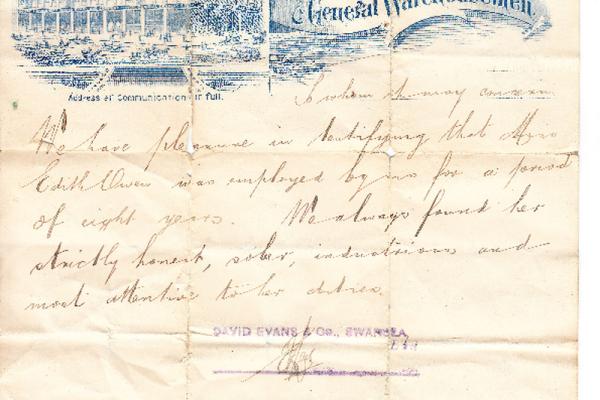 & General Warehousemen.
Address all Communications in full.
To whom it may concern
We have pleasure in testifying that Miss
Edith Owen was employed by us for a period
of eight years. We always found her
strictly honest, sober, industrious and
most attentive to her duties.
DAVID EVANS & Co., SWANSEA,